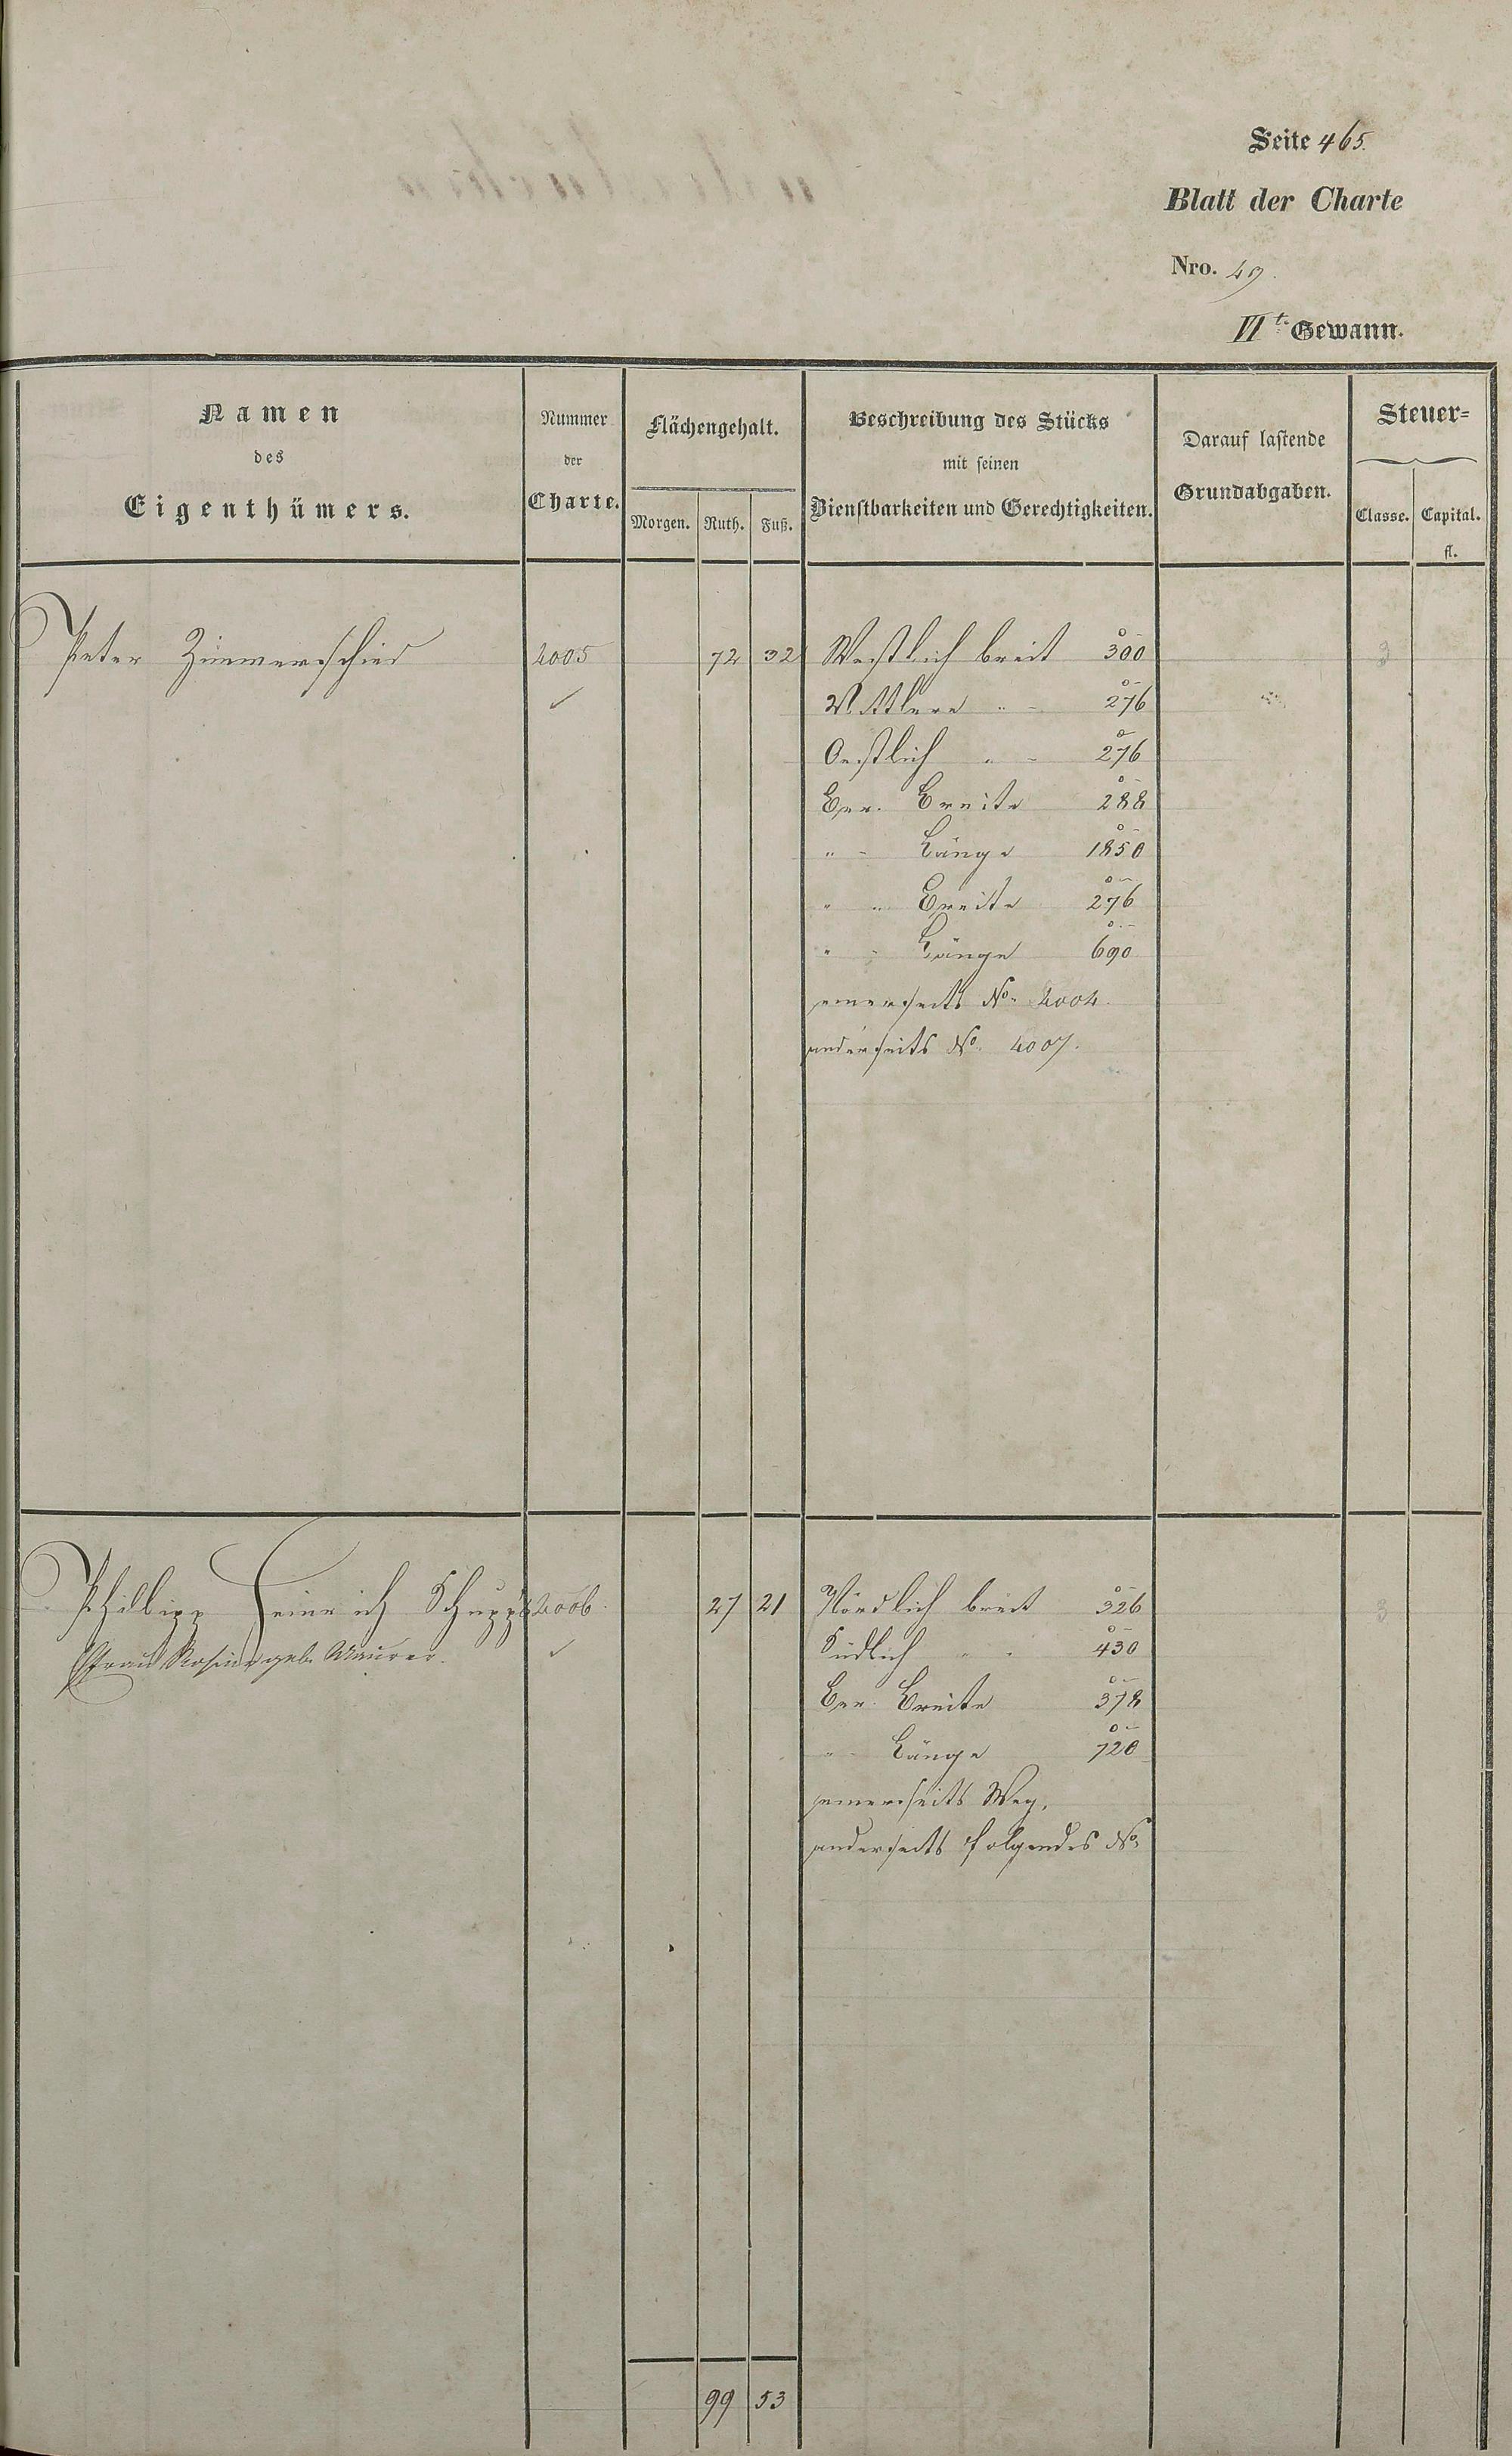 Seite 465.
Blatt der Charte
Nro. 49.
VIt. Gewann.
Namen
des
Eigenthümers.
Nummer
der
Charte.
Flächengehalt.
Morgen. Ruth. Fuß.
Beschreibung des Stücks
mit seinen
Dienstbarkeiten und Gerechtigkeiten.
Darauf lastende
Grundabgaben.
Steuer=
Classe. Capital.
fl.
Peter Zimmerschied 4005 72 32 Westlich breit 300 3
Mittlere " - 276
Oestlich " - 276
Ber. Breite 288
" - Länge 1850
" " Breite 276
" - Länge 690
einerseits No. 4004.
anderseits No. 4007.
Philipp Heinrich Schupp's 4006. 27 21 Nördlich breit 326 3
Frau Rosine geb. Maurer. Südlich " " 430
Ber. Breite 378
" - Länge 720
einerseits Weg,
anderseits folgendes No.
99 53